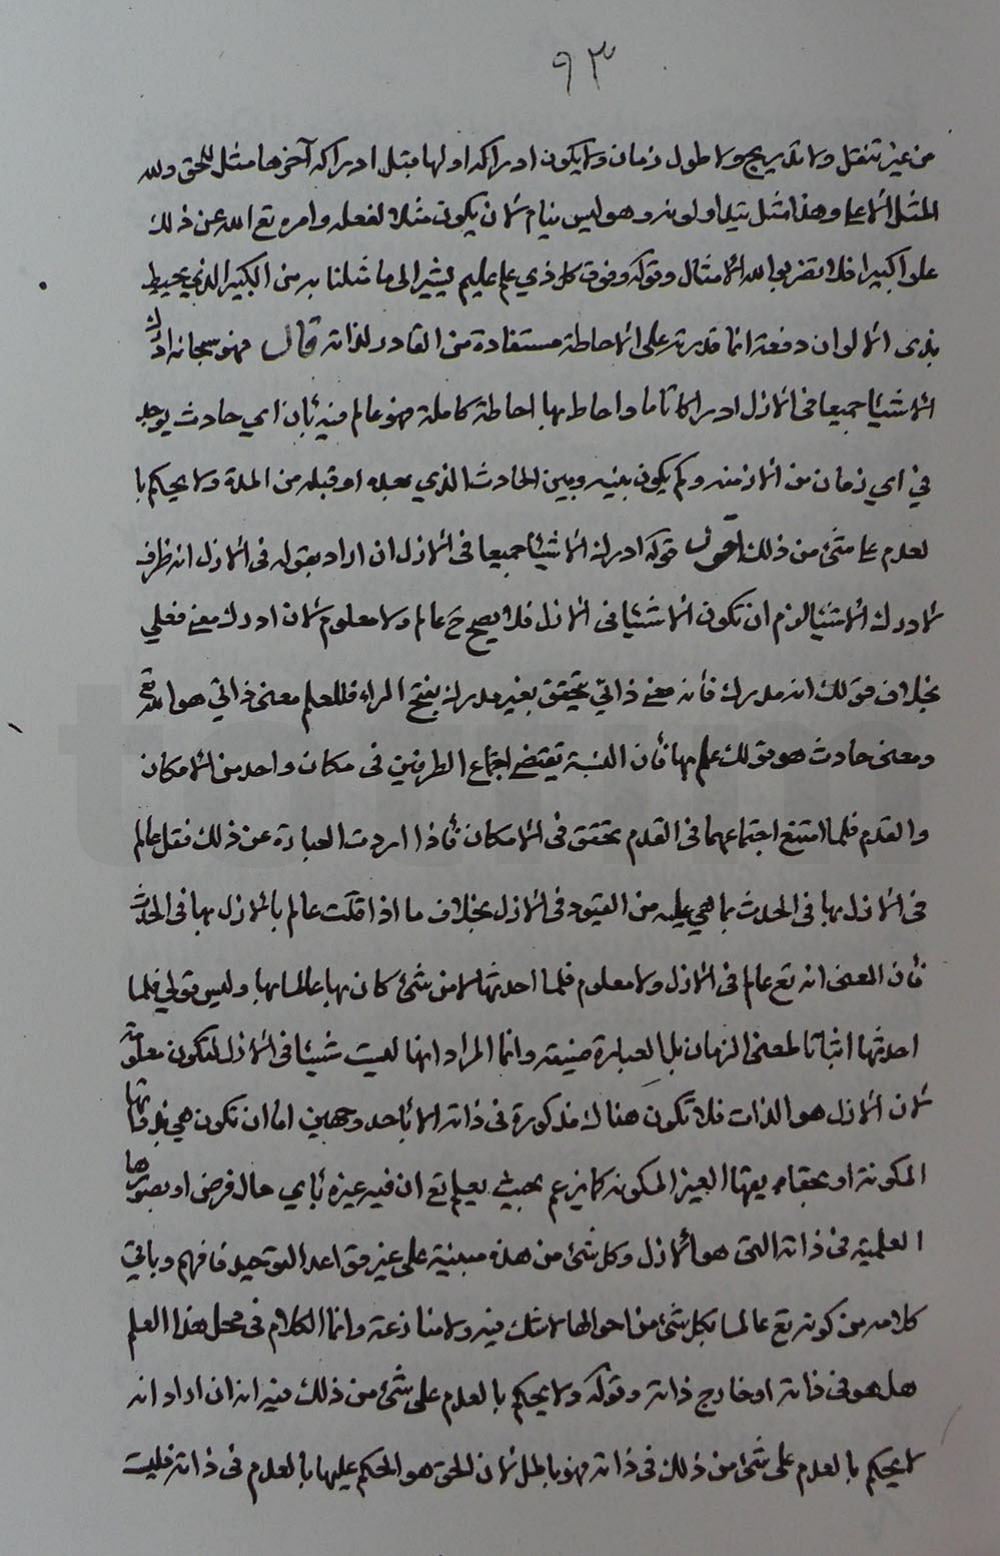 ٩٣
من غير تنقل ولا تدريج ولا طول زمان ولا يكون ادراكه اولها قبل ادراكه آخرها مثل للحق ولله
المثل الاعلى وهذا مثل تيلا ولونه وهو ليس بتام لان يكون مثلا لفعله وامره تع الله عن ذلك
علوا كبيرا فلا تضربوا لله الامثال وقوله وفوق كل ذي علم عليم يشير الى ما مثلنا به من الكبير الذي يحيط
بذى الالوان دفعة انما قدرته على الاحاطة مستفادة من القادر لذاته قال فهو سبحانه ادرك
الاشيئا جميعا فى الازل ادراكا تاما واحاط بها احاطة كاملة فهو عالم فيه بان اي حادث يوجد
في اي زمان من الازمنه وكم يكون بينه وبين الحادث الذي بعده او قبله من المدة ولا يحكم با
لعدم على شئ من ذلك اقول قوله ادرك الاشيئا جميعا فى الازل ان اراد بقوله فى الازل انه ظرف
لادرك الاشيئا لزم ان تكون الاشيئا فى الازل فلا يصح ح عالم ولا معلوم لان ادرك معنى فعلي
بخلاف قولك انه مدرك فأنه معنى ذاتي يتحقق بغير مدرك بفتح الراء فللعلم معنى ذاتي هو الله تع
ومعنى حادث هو قولك علم بها فأن النسبة تقتضى اجتماع الطرفين فى مكان واحد من الامكان
والقدم فلما امتنع اجتماعهما فى القدم تحقق فى الامكان فأذا اردت العبارة عن ذلك فقل عالم
فى الازل بها فى الحدث بما هي عليه من القيود فى الازل بخلاف ما اذا قلت عالم بالازل بها فى الحدث
فأن المعنى انه تع عالم فى الازل ولا معلوم فلما احدثها لا من شئ كان بها عالما بها وليس قولي فلما
احدثها اثباتا لمعنى الزمان بل العبارة ضيقة وانما المراد انها ليست شيئا فى الازل لتكون معلومة
لان الازل هو الذات فلا تكون هناك مذكورة فى ذاته الا بأحد وجهين اما ان تكون هي بذواتها
المكونة او بحقايقها الغير المكونه كما يزعم بحيث يعلم تع ان فيه غيره بأي حال فرض او بصورها
العلمية فى ذاته التى هو الازل وكل شئ من هذه مبنية على غير قواعد التوحيد فافهم وباقي
كلامه من كونه تع عالما بكل شئ من احوالها لا شك فيه ولا منازعة وانما الكلام فى محل هذا العلم
هل هو فى ذاته او خارج ذاته وقوله ولا يحكم بالعدم على شئ من ذلك فيه انه ان اراد انه
لا يحكم بالعدم على شئ من ذلك فى ذاته فهو باطل لان الحق هو الحكم عليها بالعدم فى ذاته فليست